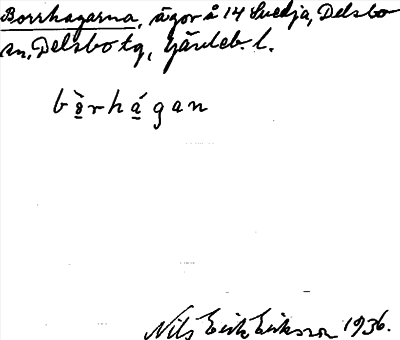 Borrhagarna, ägor å 14 Svedja, Delsbo
sn, Delsbo tg, Gävleb. l.
bò̱rhá̱gan
Nils Erik Eriksson 1936.